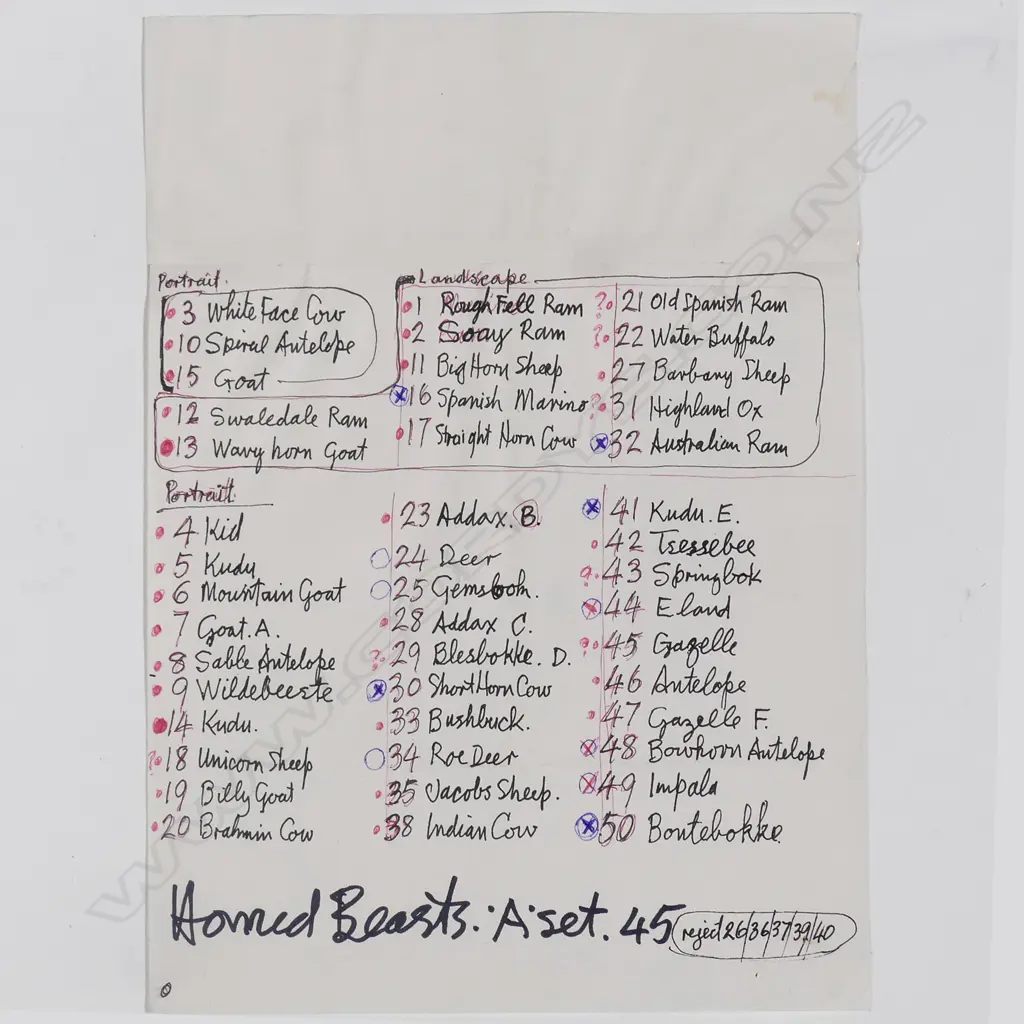 Portrait.
3 White Face Cow
10 Spiral Antelope
15 Goat
12 Swaledale Ram
13 Wavy horn Goat
Landscape
1 Rough Fell Ram
2 Soay Ram
11 Big Horn Sheep
16 Spanish Marino
17 Straight Horn Cow
? 21 Old Spanish Ram
? 22 Water Buffalo
27 Barbary Sheep
? 31 Highland Ox
32 Australian Ram
Portrait.
4 Kid
5 Kudu
6 Mountain Goat
7 Goat. A.
8 Sable Antelope
9 Wildebeeste
14 Kudu.
? 18 Unicorn Sheep
19 Billy Goat
20 Brahmin Cow
23 Addax. B.
24 Deer
25 Gemsbok.
28 Addax C.
? 29 Blesbokke. D.
30 Short Horn Cow
33 Bushbuck.
34 Roe Deer
35 Jacobs Sheep.
38 Indian Cow
41 Kudu. E.
42 Tsessebee
? 43 Springbok
44 Eland
? 45 Gazelle
46 Antelope
47 Gazelle F.
48 Bowhorn Antelope
49 Impala
50 Bontebokke.
Horned Beasts. 'A' set. 45 reject 26/36/37/39/40
WWW.SPEEDYZ.CO.NZ